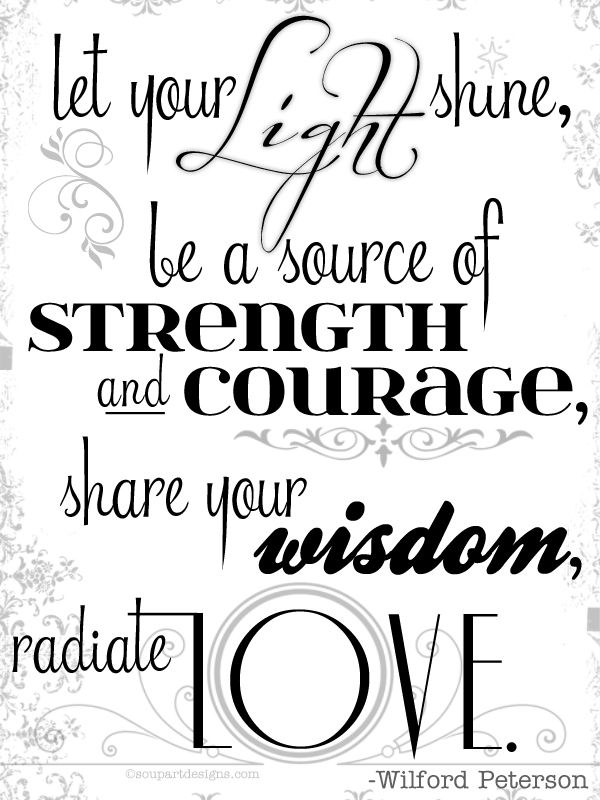 let your Light shine,
be a source of
STRENGTH
and COURAGE,
share your
wisdom,
radiate LOVE.
©soupartdesigns.com
-Wilford Peterson